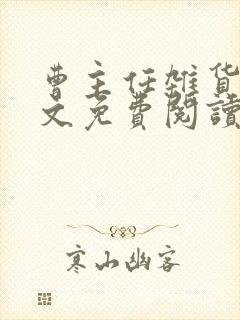 曹主任雜貨
文免費閱讀
寒山幽客